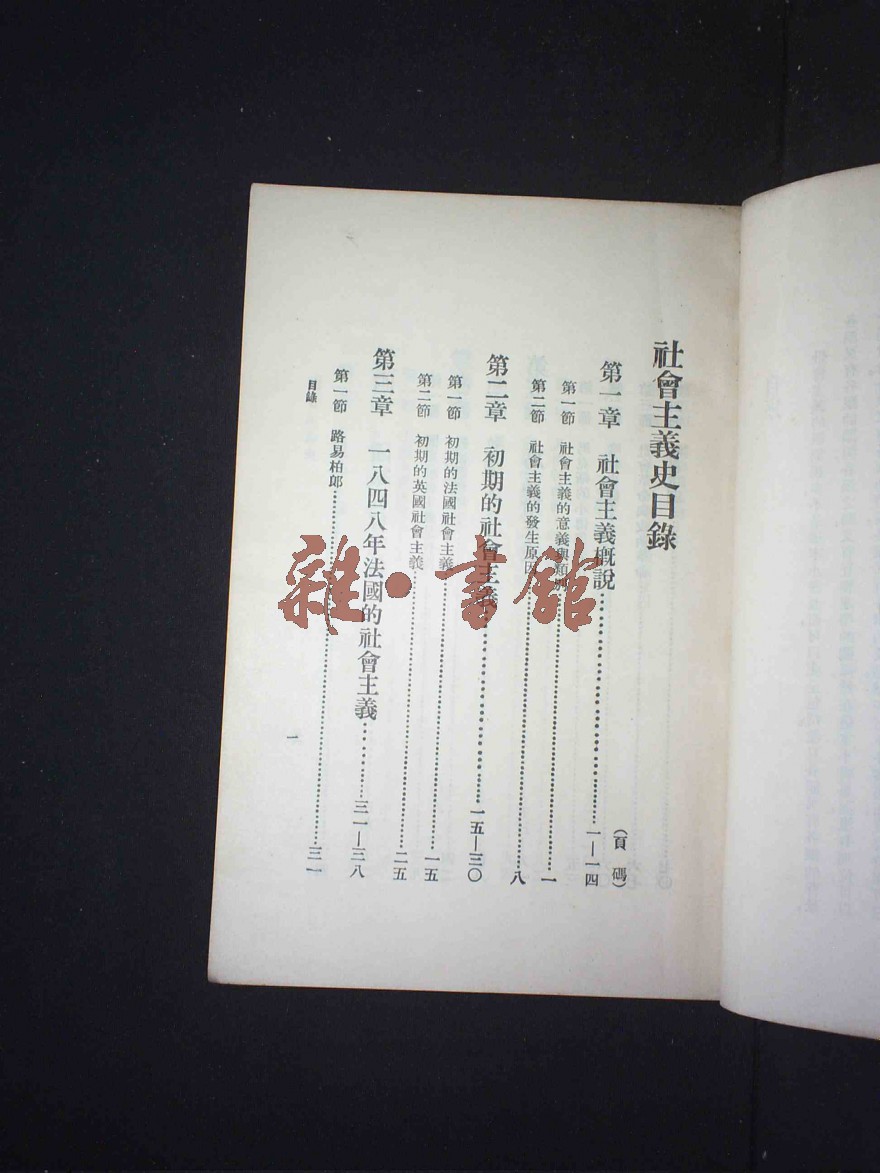 社會主義史目錄
(頁碼)
第一章 社會主義概說……一—一四
第一節 社會主義的意義與……一
第二節 社會主義的發生原因……八
第二章 初期的社會主義……一五—三〇
第一節 初期的法國社會主義……一五
第二節 初期的英國社會主義……二五
第三章 一八四八年法國的社會主義……三一—三八
第一節 路易柏郎……三一
目錄
一
雜·書館